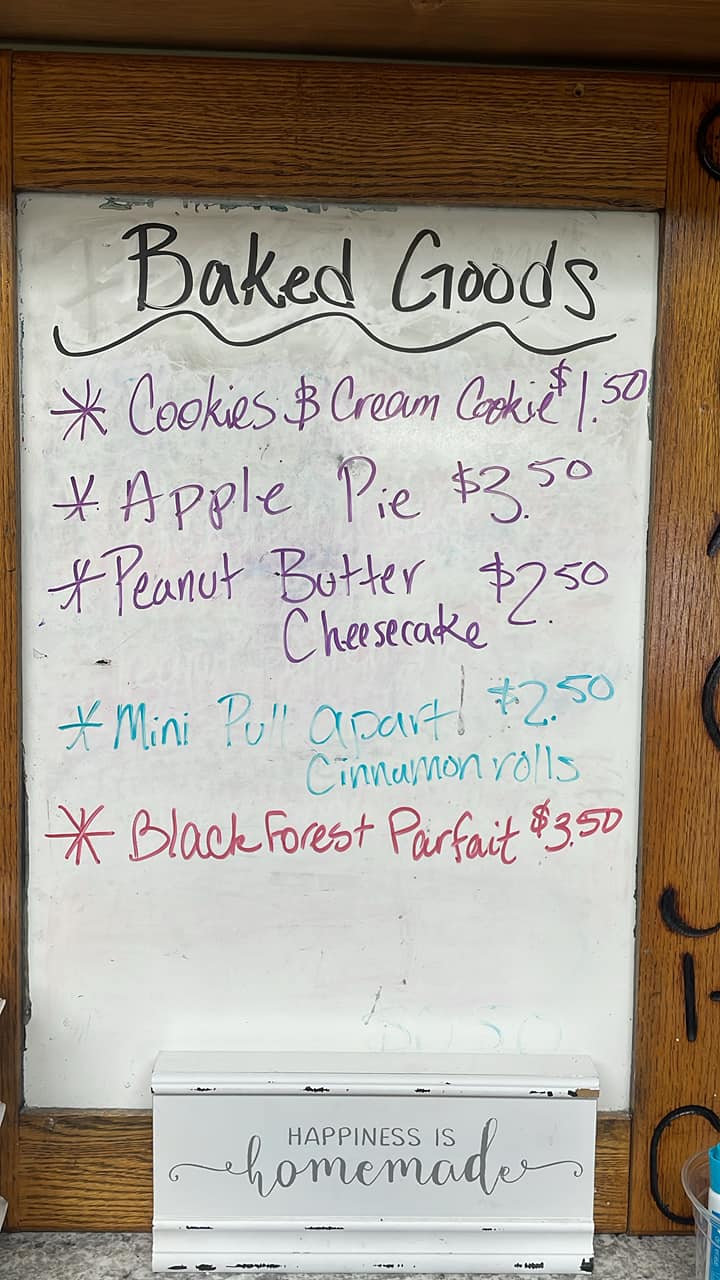 Baked Goods
* Cookies & Cream Cookie $1.50
* Apple Pie $3.50
* Peanut Butter $2.50
Cheesecake
* Mini Pull apart $2.50
Cinnamon rolls
* Black Forest Parfait $3.50
HAPPINESS IS
homemade